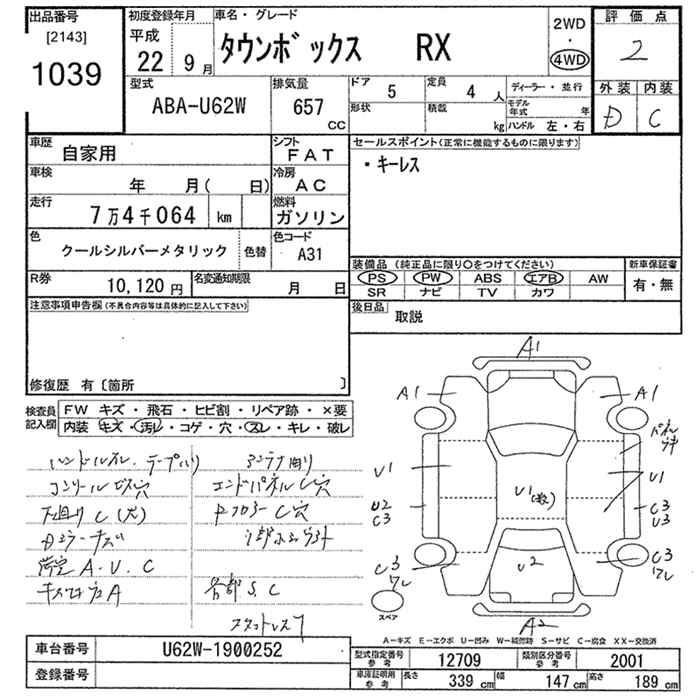 出品番号 初度登録年月 車名・グレード 2WD 評価点
[2143] 平成 ・ 2
1039 22 9月 タウンボックス RX 4WD
型式 排気量 ドア 5 定員 4人 ディーラー・並行 外装 内装
ABA-U62W 657 CC 形状 積載 kg モデル年式 年 D C
ハンドル 左・右
車歴 自家用 シフト FAT セールスポイント(正常に機能するものに限ります)
車検 年 月( 日) 冷房 AC ・キーレス
走行 7万4千064 km 燃料 ガソリン
色 クールシルバーメタリック 色替 色コード A31
装備品 (純正品に限り○をつけてください) 新車保証書
R券 10,120円 名変通知期限 月 日 PS PW ABS エアB AW 有・無
SR ナビ TV カワ
注意事項申告欄(不具合内容等は具体的に記入して下さい) 後日品 取説
修復歴 有〔箇所 〕
検査員記入欄 FW キズ・飛石・ヒビ割・リペア跡・×要
内装 キズ・汚レ・コゲ・穴・スレ・キレ・破レ
エンドパネルC穴
下廻りC(大) FフロアーC穴
Dミラーキズ
A.U.C
各部S.C
A1
A1 A1
U1 U1 U1
U2 C3 C3 U3
C3 ワレ U2 C3 ワレ
スペア A2
A-キズ E-エクボ U-凹み W-補修跡 S-サビ C-腐食 XX-交換済
車台番号 U62W-1900252 型式指定番号 参考 12709 類別区分番号 参考 2001
登録番号 車庫証明用 参考 長さ 339cm 幅 147cm 高さ 189cm